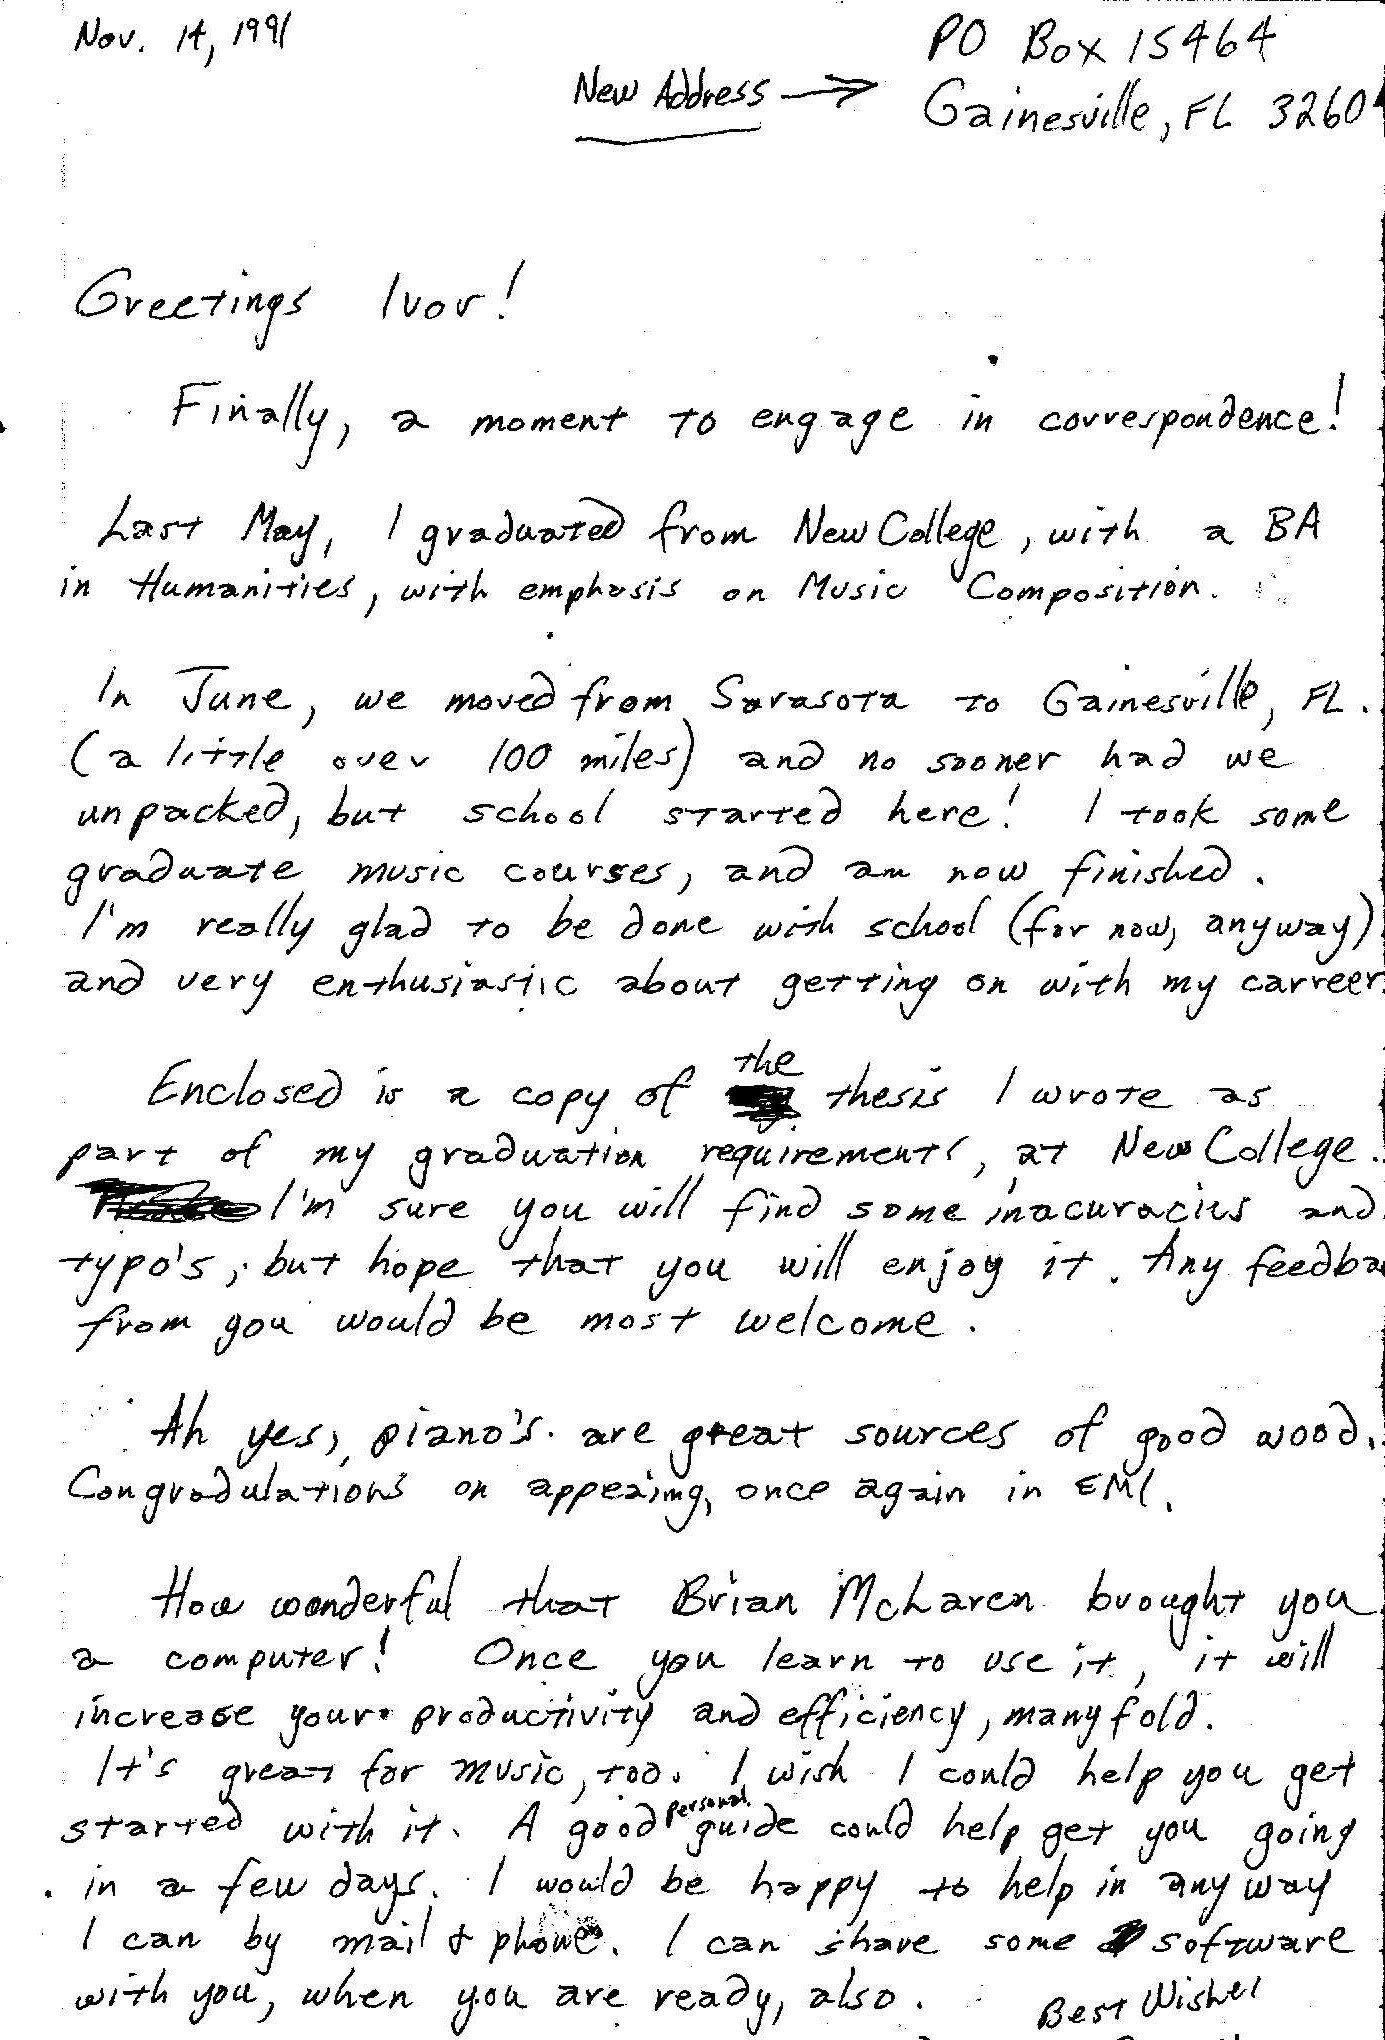 Nov. 14, 1991
PO Box 15464
New Address → Gainesville, FL 3260
Greetings Ivor!
Finally, a moment to engage in correspondence!
Last May, I graduated from New College, with a BA
in Humanities, with emphasis on Music Composition.
In June, we moved from Sarasota to Gainesville, FL.
(a little over 100 miles) and no sooner had we
unpacked, but school started here! I took some
graduate music courses, and am now finished.
I'm really glad to be done with school (for now, anyway)
and very enthusiastic about getting on with my carreer.
Enclosed is a copy of the thesis I wrote as
part of my graduation requirements, at New College.
I'm sure you will find some inacuracies and
typo's, but hope that you will enjoy it. Any feedba
from you would be most welcome.
Ah yes, piano's are great sources of good wood.
Congradulations on appearing, once again in EMI.
How wonderful that Brian McLaren brought you
a computer! Once you learn to use it, it will
increase your productivity and efficiency, many fold.
It's great for music, too. I wish I could help you get
started with it. A good personal guide could help get you going
in a few days. I would be happy to help in any way
I can by mail & phone. I can share some software
with you, when you are ready, also.
Best Wishes